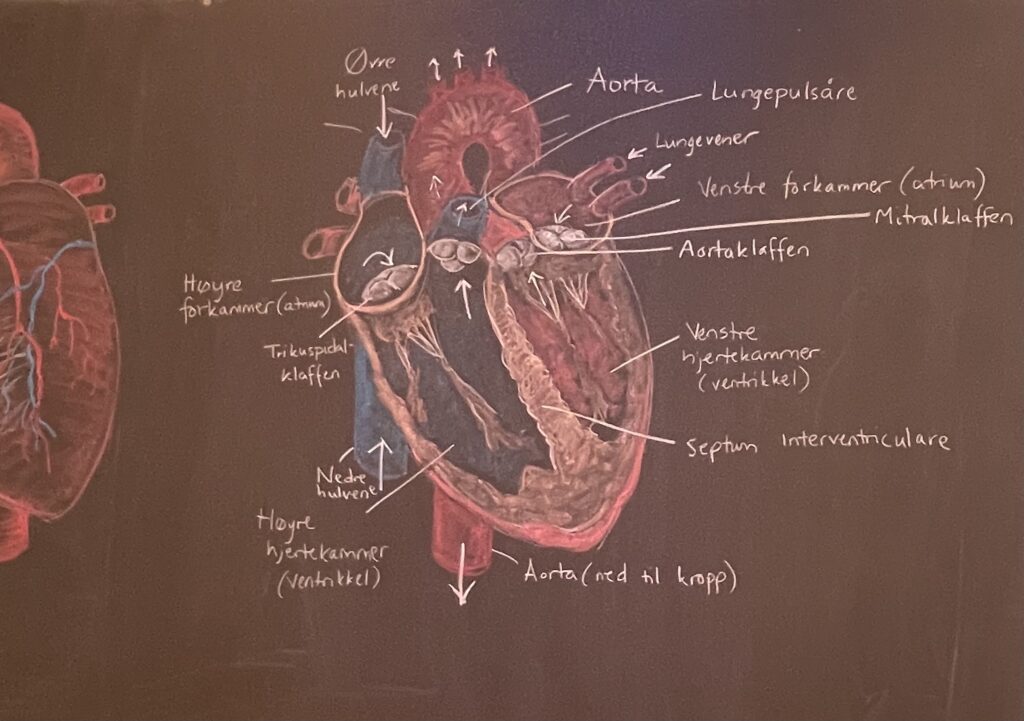 Øvre
hulvene
Aorta
Lungepulsåre
Lungevener
Venstre forkammer (atrium)
Mitralklaffen
Aortaklaffen
Høyre
forkammer (atrium)
Trikuspidal-
klaffen
Venstre
hjertekammer
(ventrikkel)
Septum interventriculare
Nedre
hulvene
Høyre
hjertekammer
(ventrikkel)
Aorta (ned til kropp)